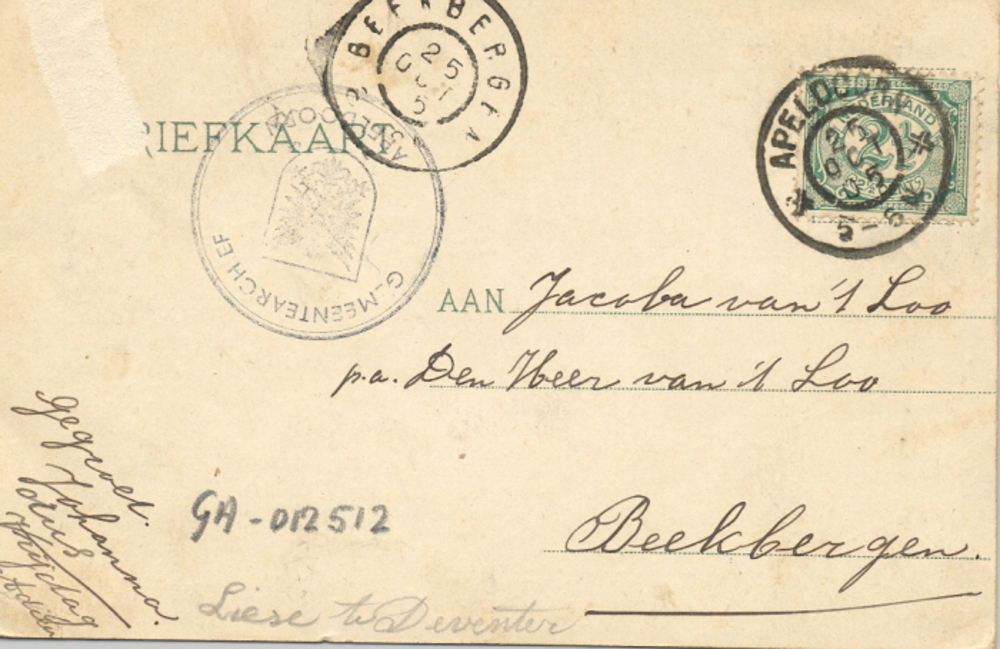 BEEKBERGEN
25 OCT 5
RIEFKAART
GEMEENTEARCHIEF
APELDOORN
APELDOORN
NEDERLAND
2½
5-6
AAN Jacoba van 't Loo
p.a. Den Heer van 't Loo
Beekbergen.
gegroet.
Johanna.
dus
Vrijdag
GA-012512
Liese te Deventer